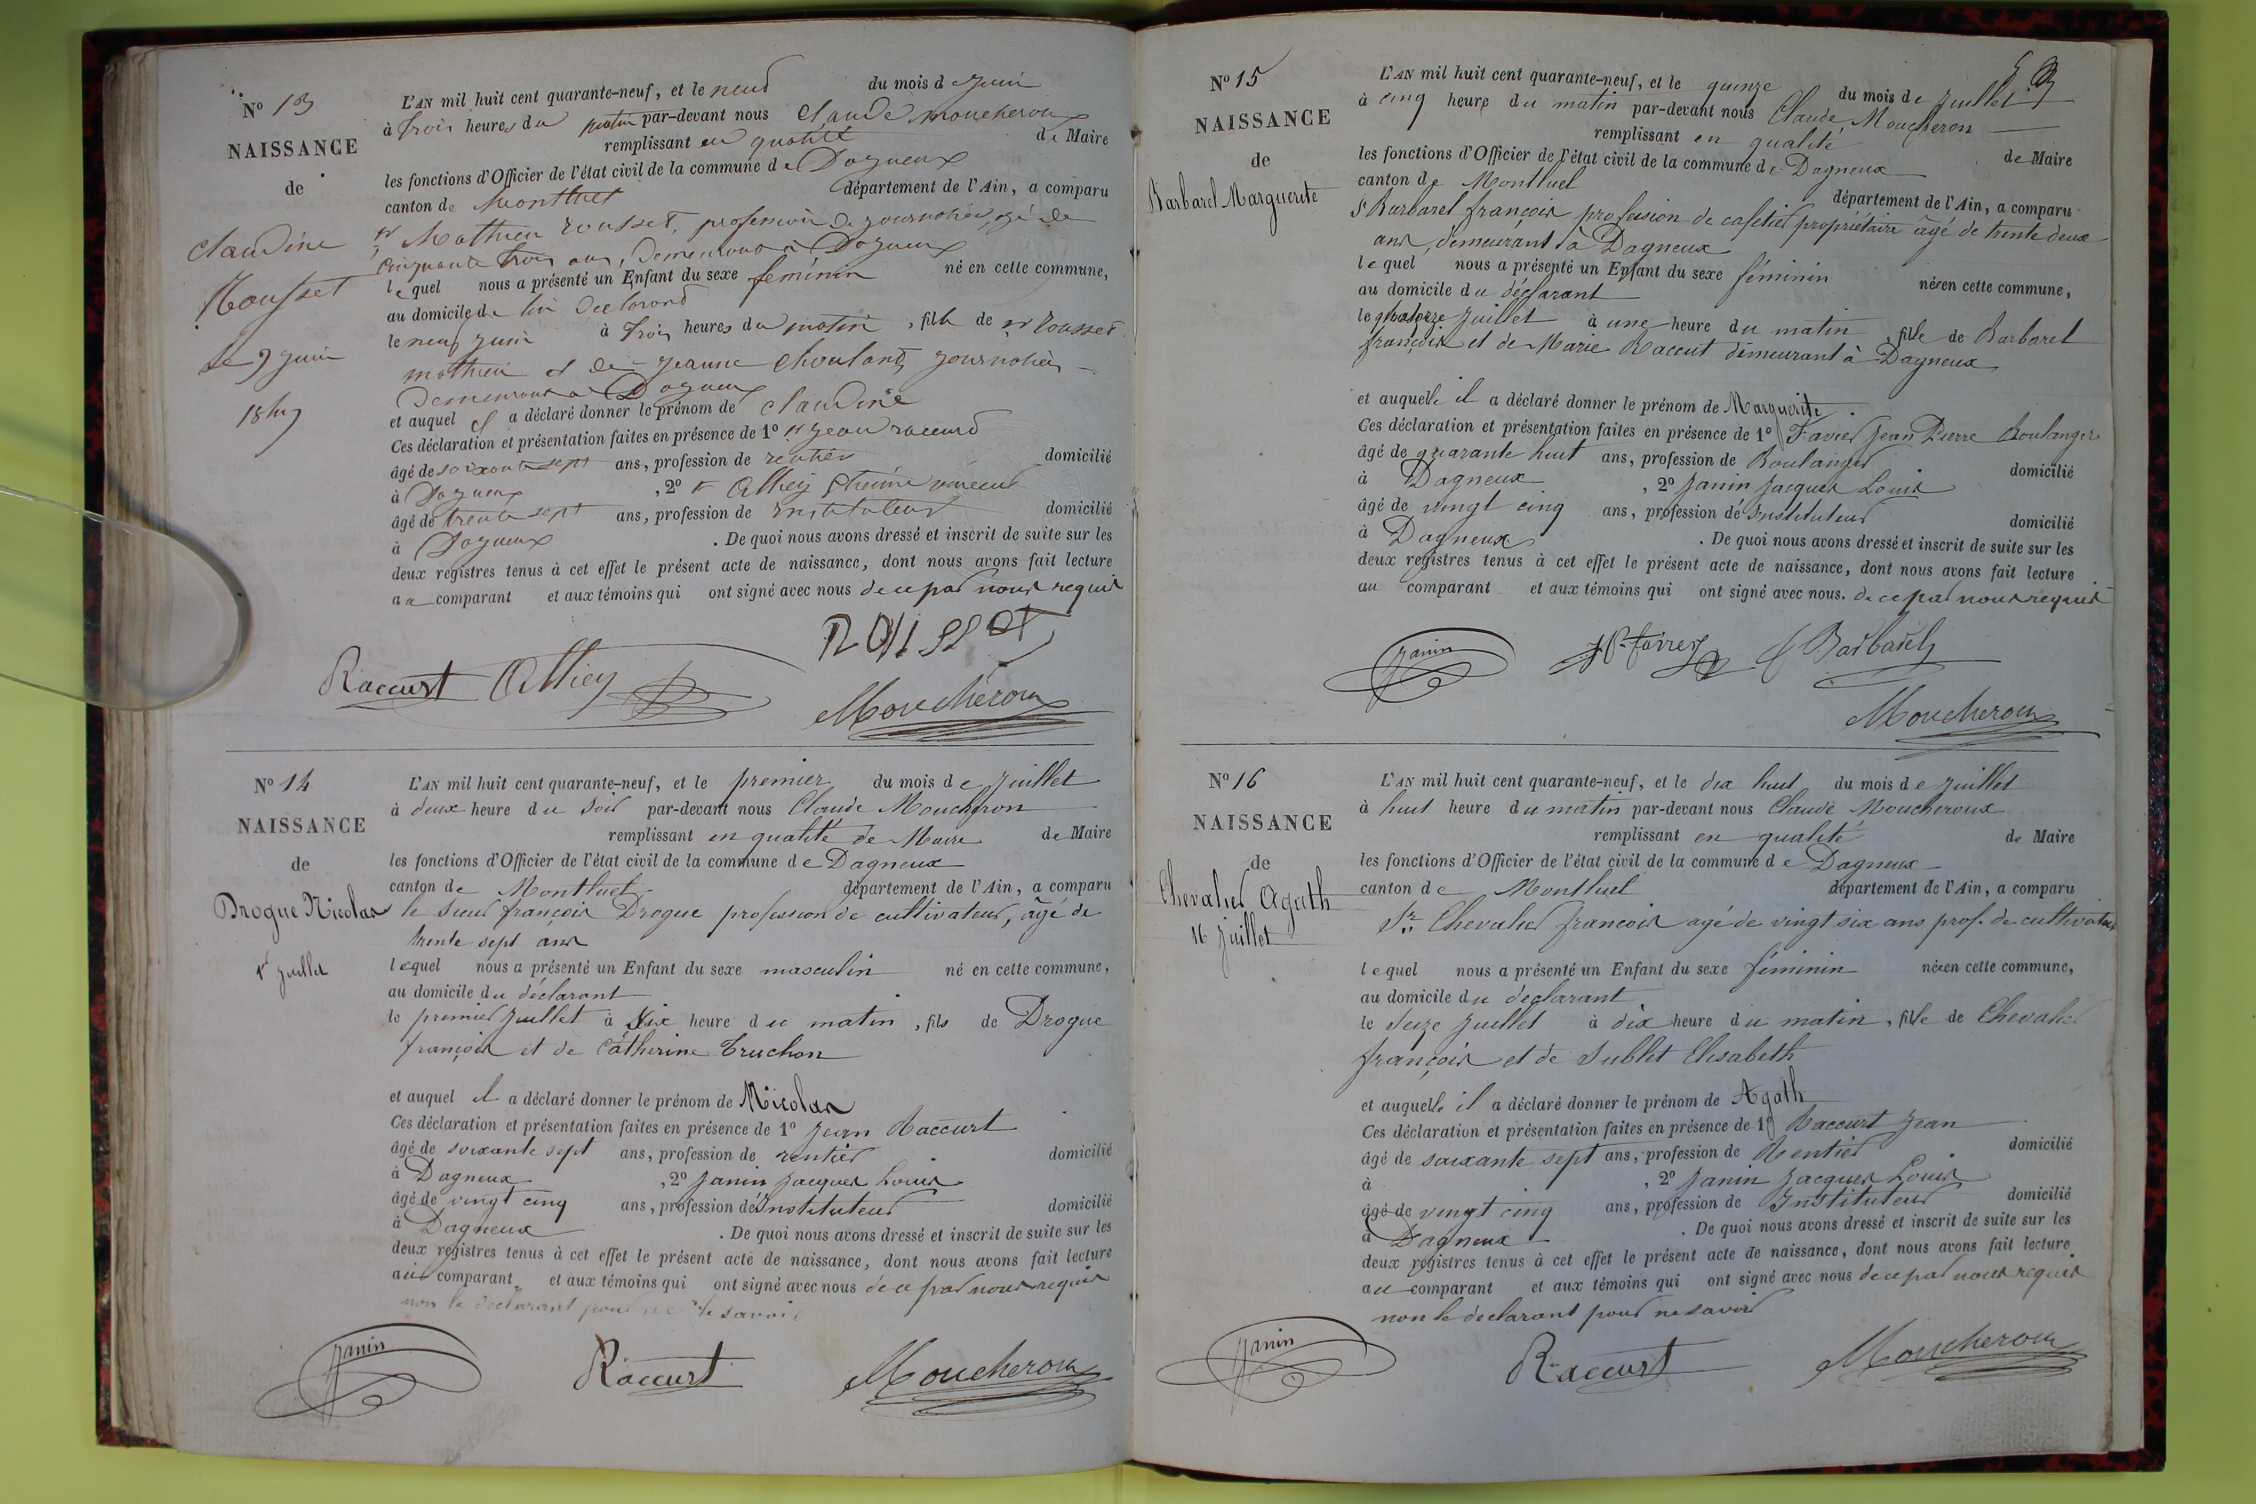 N° 13
NAISSANCE
de
Claudine
Rousset
le 9 juin
1849
L'AN mil huit cent quarante-neuf, et le neuf du mois de juin
à trois heures du matin par-devant nous Claude Moucheroux
remplissant en qualité de Maire
les fonctions d'Officier de l'état civil de la commune de Dagneux
canton de Montluel département de l'Ain, a comparu
sr Mathieu Rousset, profession de journalier, agé de
cinquante trois ans, demeurant à Dagneux
lequel nous a présenté un Enfant du sexe feminin né en cette commune,
au domicile de lui declarant
le neuf juin à trois heures du matin, fille de sr Rousset
mathieu et de jeanne Chouland journalier
demeurant à Dagneux
et auquel il a déclaré donner le prénom de Claudine
Ces déclaration et présentation faites en présence de 1° sr jean raccurd
âgé de soixante sept ans, profession de rentier domicilié
à Dagneux, 2° sr Allhey étienne vincent
âgé de trente sept ans, profession de instituteur domicilié
à Dagneux. De quoi nous avons dressé et inscrit de suite sur les
deux registres tenus à cet effet le présent acte de naissance, dont nous avons fait lecture
au comparant et aux témoins qui ont signé avec nous de ce par nous requis
ROUSSET
Raccurt Allhey
Moucheroux
N° 14
NAISSANCE
de
Drogue Nicolas
1er juillet
L'AN mil huit cent quarante-neuf, et le premier du mois de juillet
à deux heure du soir par-devant nous Claude Moucheron
remplissant en qualité de Maire de Maire
les fonctions d'Officier de l'état civil de la commune de Dagneux
canton de Montluel département de l'Ain, a comparu
le Sieur françois Drogue profession de cultivateur, âgé de
trente sept ans
lequel nous a présenté un Enfant du sexe masculin né en cette commune,
au domicile du déclarant
le premier juillet à dix heure du matin, fils de Drogue
françois et de Catherine Truchon
et auquel il a déclaré donner le prénom de Nicolas
Ces déclaration et présentation faites en présence de 1° Jean Raccurt
âgé de soixante sept ans, profession de rentier domicilié
à Dagneux, 2° Janin Jacques Louis
âgé de vingt cinq ans, profession de Instituteur domicilié
à Dagneux. De quoi nous avons dressé et inscrit de suite sur les
deux registres tenus à cet effet le présent acte de naissance, dont nous avons fait lecture
au comparant et aux témoins qui ont signé avec nous de ce par nous requis
non le declarant pour ne le savoir
Janin Raccurt Moucheroux
N° 15
NAISSANCE
de
Barbaret Marguerite
L'AN mil huit cent quarante-neuf, et le quinze du mois de juillet
à cinq heure du matin par-devant nous Claude Moucheron
remplissant en qualité de Maire
les fonctions d'Officier de l'état civil de la commune de Dagneux
canton de Montluel département de l'Ain, a comparu
Sr Barbaret françois profession de cafetier propriétaire âgé de trente deux
ans, demeurant à Dagneux
lequel nous a présenté un Enfant du sexe féminin née en cette commune,
au domicile du déclarant
le quatorze juillet à une heure du matin, fille de Barbaret
françois et de Marie Raccut demeurant à Dagneux
et auquelle il a déclaré donner le prénom de Marguerite.
Ces déclaration et présentation faites en présence de 1° Favier Jean Pierre Boulanger
âgé de quarante huit ans, profession de Boulanger domicilié
à Dagneux, 2° Janin Jacques Louis
âgé de vingt cinq ans, profession de Instituteur domicilié
à Dagneux. De quoi nous avons dressé et inscrit de suite sur les
deux registres tenus à cet effet le présent acte de naissance, dont nous avons fait lecture
au comparant et aux témoins qui ont signé avec nous. de ce par nous requis
Janin Barbaret
Moucheroux
N° 16
NAISSANCE
de
Chevalier Agath
16 juillet
L'AN mil huit cent quarante-neuf, et le dix huit du mois de juillet
à huit heure du matin par-devant nous Claude Moucheroux
remplissant en qualité de Maire
les fonctions d'Officier de l'état civil de la commune de Dagneux
canton de Montluel département de l'Ain, a comparu
Sr. Chevalier francois agé de vingt six ans prof. de cultivateur
lequel nous a présenté un Enfant du sexe féminin née en cette commune,
au domicile du déclarant
le seize juillet à dix heure du matin, fille de Chevalier
françois et de Sublet Elisabeth
et auquelle il a déclaré donner le prénom de Agath
Ces déclaration et présentation faites en présence de 1° Raccurt Jean
âgé de soixante sept ans, profession de Rentier domicilié
à , 2° Janin Jacques Louis
âgé de vingt cinq ans, profession de Instituteur domicilié
à Dagneux. De quoi nous avons dressé et inscrit de suite sur les
deux registres tenus à cet effet le présent acte de naissance, dont nous avons fait lecture
au comparant et aux témoins qui ont signé avec nous de ce par nous requis
non le declarant pour ne savoir
Janin Raccurt Moucheroux